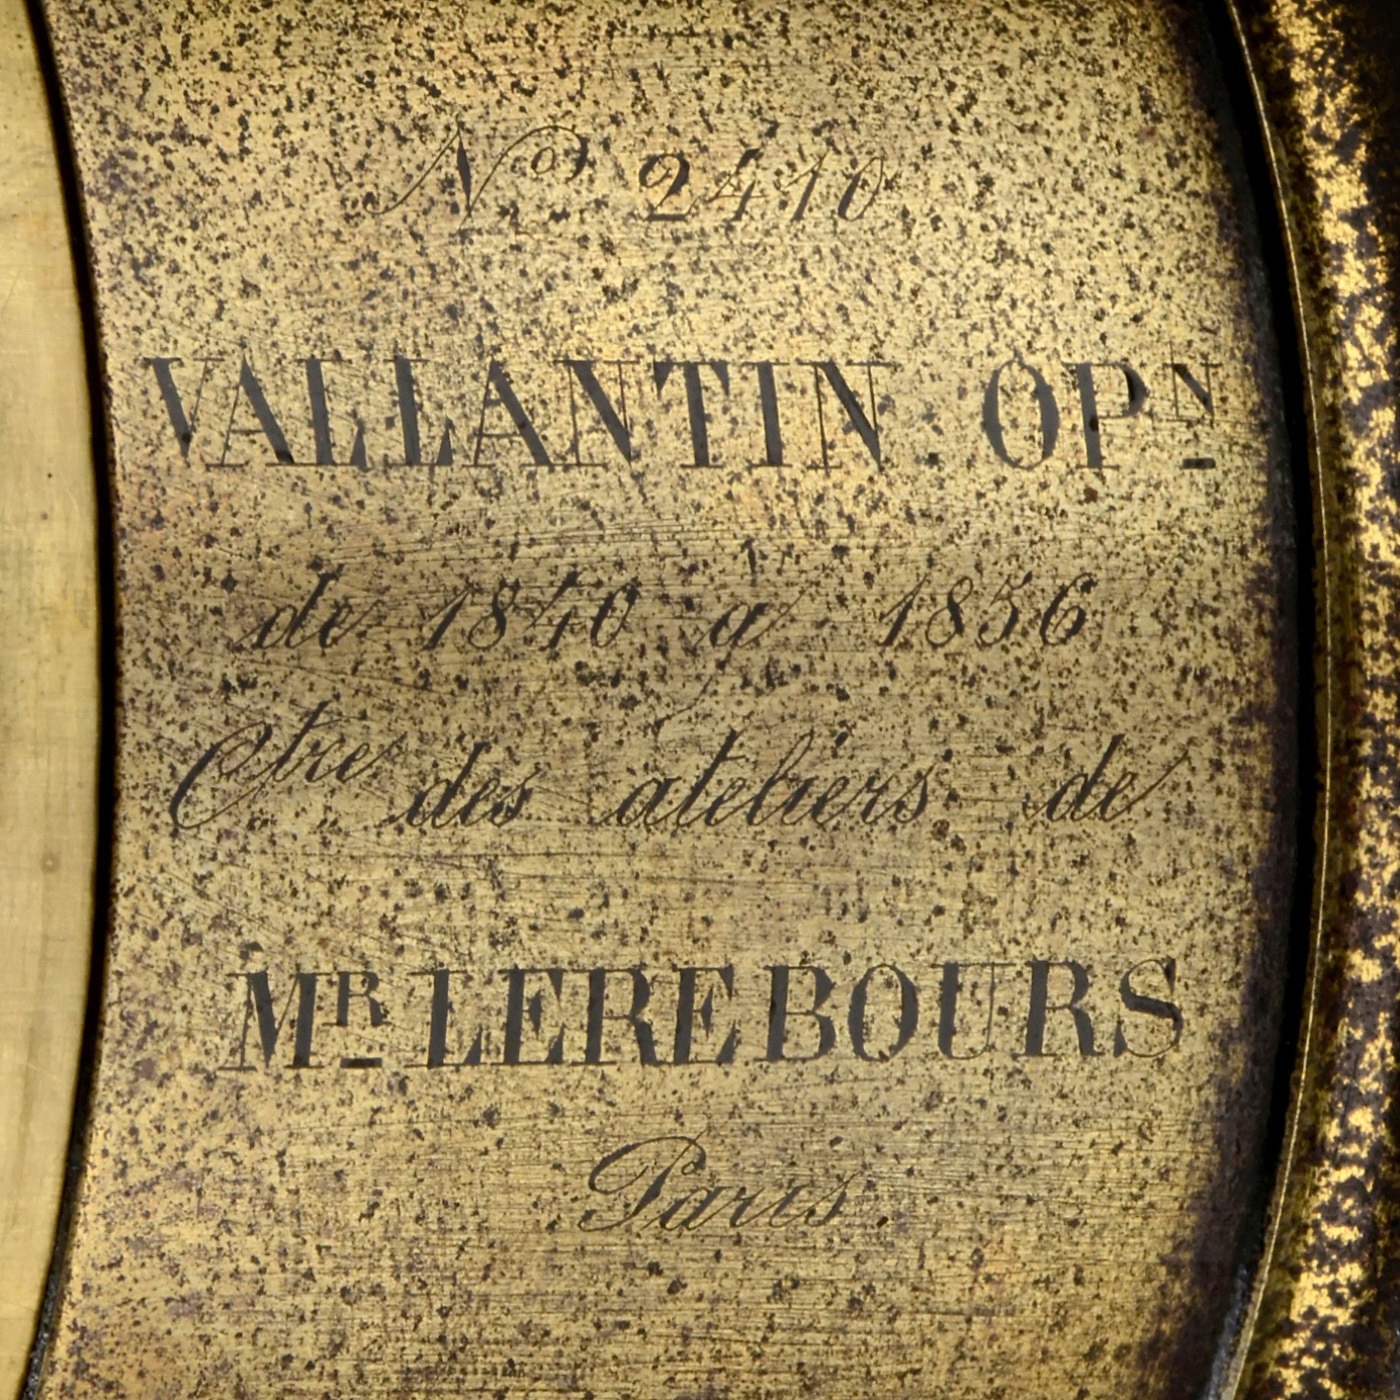 Nº 2410
VALLANTIN OPᴺ
de 1840 a 1856
Ctre des ateliers de
Mᴿ LEREBOURS
Paris.